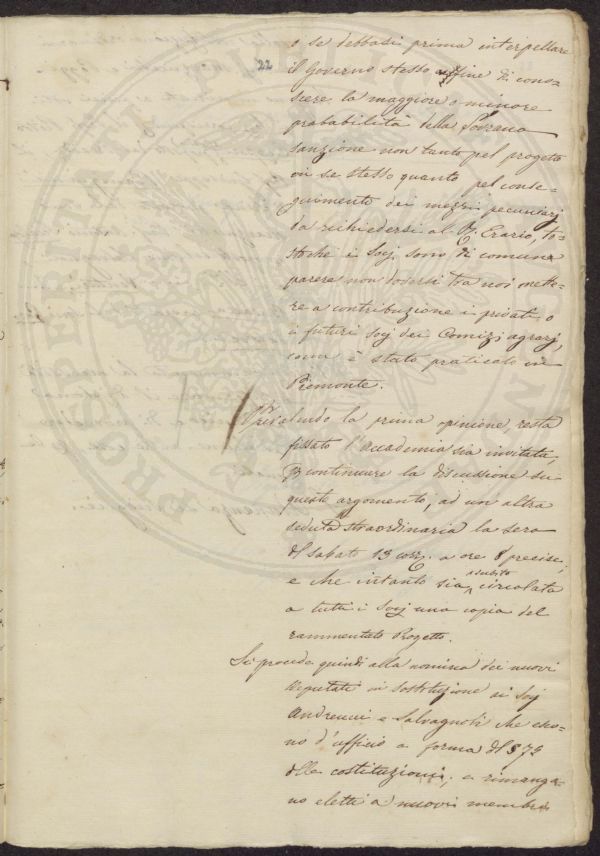 22
o se debbasi prima interpellare
il Governo stesso affine di cono-
scere la maggiore o minore
probabilità della Sovrana
sanzione non tanto pel progetto
in se stesso quanto pel conse-
guimento dei mezzi pecuniarj
da richiedersi al R. Erario, to-
stochè i Socj sono di comune
parere non doversi tra noi mette-
re a contribuzione i privati o
i futuri Socj dei Comizj agrarj,
come è stato praticato in
Piemonte.
Prevalendo la prima opinione, resta
fissato l'Accademia sia invitata,
p continuare la discussione su
questo argomento, ad un altra
seduta straordinaria la sera
del sabato 13 corr. a ore 8 precise,
e che intanto sia subito circolata
a tutti i Socj una copia del
rammentato Progetto.
Si procede quindi alla nomina dei nuovi
Deputati in sostituzione ai Socj
Andreucci e Salvagnoli che esco-
no d'uffizio a forma del § 72
delle costituzioni, e rimango-
no eletti a nuovi membri
PROSPERITA